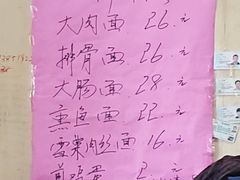 大肉面 26.元
排骨面 26.元
大肠面 28.元
熏鱼面 22.元
雪菜肉丝面 16.元
煎鸡蛋 2.元